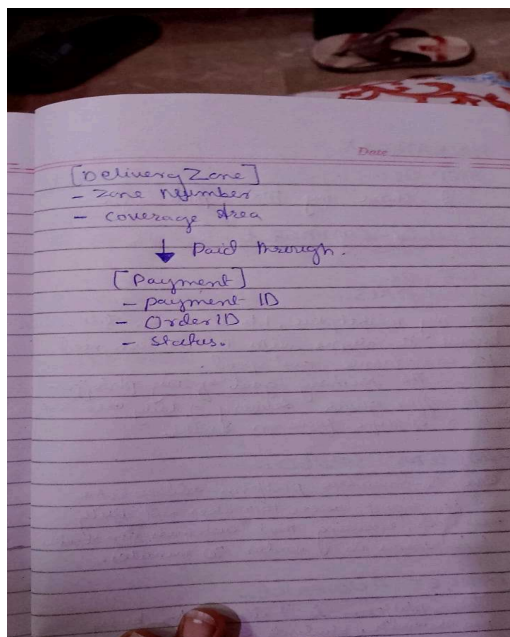 Date
[Delivery Zone]
- Zone Number
- Coverage Area
↓ Paid through.
[Payment]
- payment ID
- Order ID
- Status.